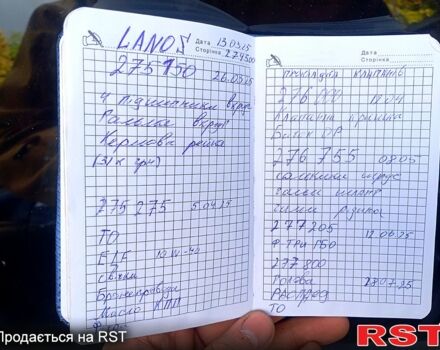 LANOS
Дата 13.03.25
Сторінка 274300
275150 26.03.25
4 підшипники вкруг
Ральца вкруг
Кермова рейка
(31к грн)
275 275 5.04.25
ТО
ELF 10W-40
свічки
Бронепроводи
Масло КПП
Дата
Сторінка
прокладка клапанів
276000 12.04
Клапанна кришка
Бачок ОР
276 755 08.05
сальники
гальм шланг
гальм рідина
277205 12.06.25
Фтри ГБО
277800
Голова 28.07.25
РАСПРЕД
ТО
Продається на RST
RST